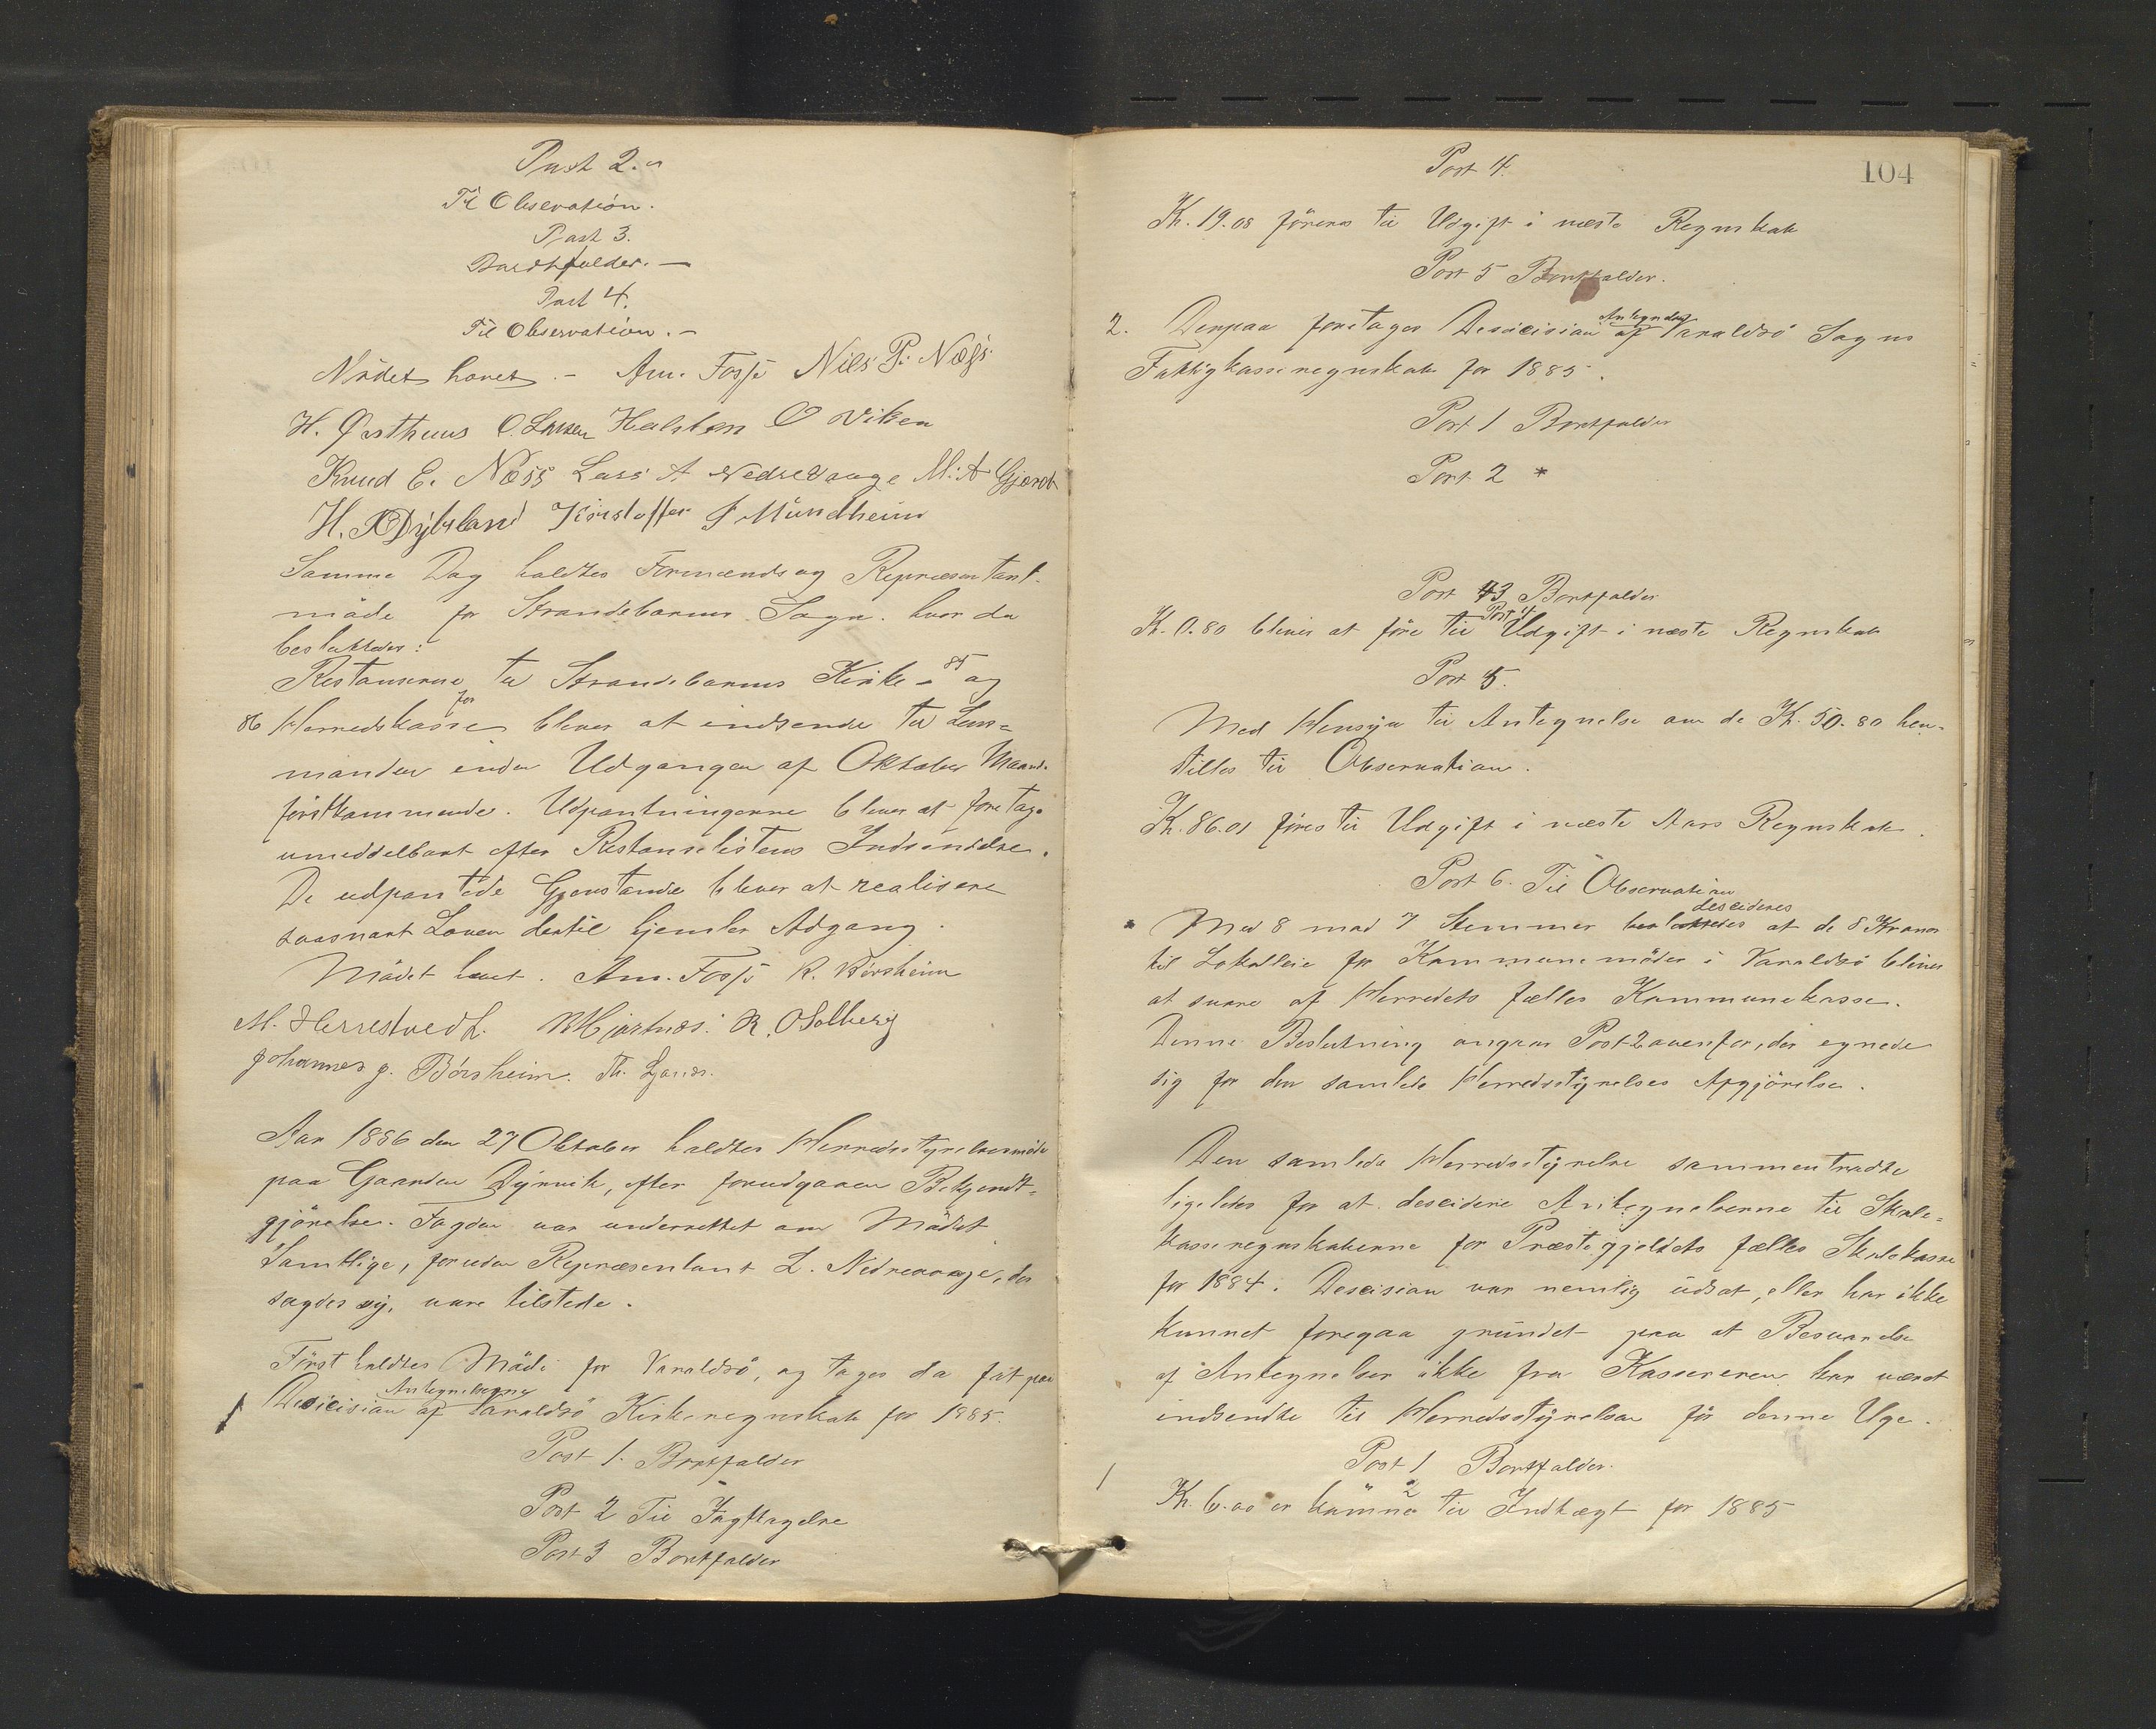 Post 2.
Til Observation.
Post 3.
Bortfalder. —
Post 4.
Til Observation. —
Mødet hævet. — Am. Fosse Nils P. Næss
H. Østhuus O. Larsen Halsten O Viken
Knud E. Næss Lars A Nedrevaage M. A Gjerde
H. Dybsland Kristoffer J Mundheim
Samme Dag holdtes Formænds og Repræsentant-
møde for Strandebarms Sogn. hvor da
besluttedes:
Restanserne til Strandebarms Kirke 85 og
86 Herredskasse for bliver at indsende til Lens-
manden inden Udgangen af Oktober Maaned
førstkommende. Udpantningerne bliver at foretage
umiddelbart efter Restanselistens Indsendelse.
De udpantede Gjenstande bliver at realisere
saasnart Loven dertil hjemler Adgang.
Mødet hævet. Am. Fosse K. Børsheim
M. Herrestvedt. R. O Solberg
Johannes J. Børsheim. Th.
Aar 1886 den 27 Oktober holdtes Herredsstyrelsesmøde
paa Gaarden Dyrvik, efter forudgaaen Bekjendt-
gjørelse. Fogden var underrettet om Mødet
Samtlige, foruden Repræsentant L. Nedrevaage, der
sagdes syg, vare tilstede.
Først holdtes Møde for Varaldsø, og toges da fat paa
1 Desicision af Antegnelserne Varaldsø Kirkeregnskab for 1885.
Post 1. Bortfalder
Post 2 Til Iagttagelse
Post 3 Bortfalder
104
Post 4.
Kr. 19.08 føres til Udgift i næste Regnskab
Post 5 Bortfalder.
2. Derpaa foretages Desicision af Antegnelser Varaldsø Sogns
Fattigkasseregnskab for 1885.
Post 1 Bortfalder
Post 2 *
Post 3 Bortfalder
Post 4
Kr. 0.80 bliver at føre til Udgift i næste Regnskab
Post 5.
Med Hensyn til Antegnelse om de Kr. 50.80 hen-
stilles til Observation.
Kr. 86.01 føres til Udgift i næste Aars Regnskab.
Post 6. Til Observation
* Med 8 mod 7 Stemmer besluttedes descideres at de 8 Kroner
til Lokalleie for Kommunemøder i Varaldsø bliver
at svare af Herredets fælles Kommunekasse.
Denne Beslutning angaar Post 2 ovenfor, der egnede
sig for den samlede Herredsstyrelses Afgjørelse.
Den samlede Herredsstyrelse sammentraadte
ligeledes for at descidere Antegnelserne til Skole-
kasseregnskaberne for Præstegjeldets fælles Skolekasse
for 1884. Descision var nemlig udsat, eller har ikke
kunnet foregaa grundet paa at Besvarelse
af Antegnelser ikke fra Kassereren har været
indsendte til Herredsstyrelsen før denne Uge.
Post 1 Bortfalder.
2
1 Kr. 6.00 er komne til Indtægt for 1885